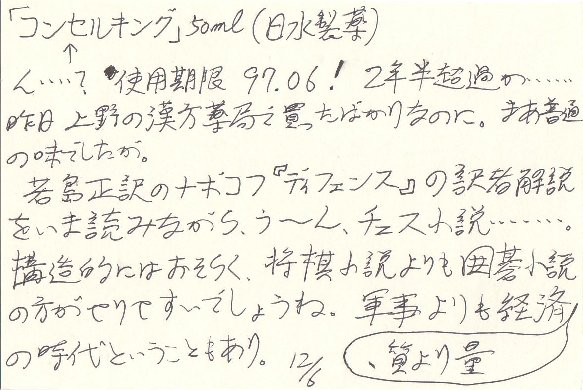 「コンセルキング」50ml(日水製薬)
↑
ん……? 使用期限 97.06! 2年半超過か……
昨日 上野の漢方薬局で買ったばかりなのに。まあ普通
の味でしたが。
若島正訳のナボコフ『ディフェンス』の訳者解説
をいま読みながら、う〜ん、チェス小説………。
構造的にはおそらく、将棋小説よりも囲碁小説
の方がやりやすいでしょうね。軍事よりも経済
の時代ということもあり。 12/6 、質より量